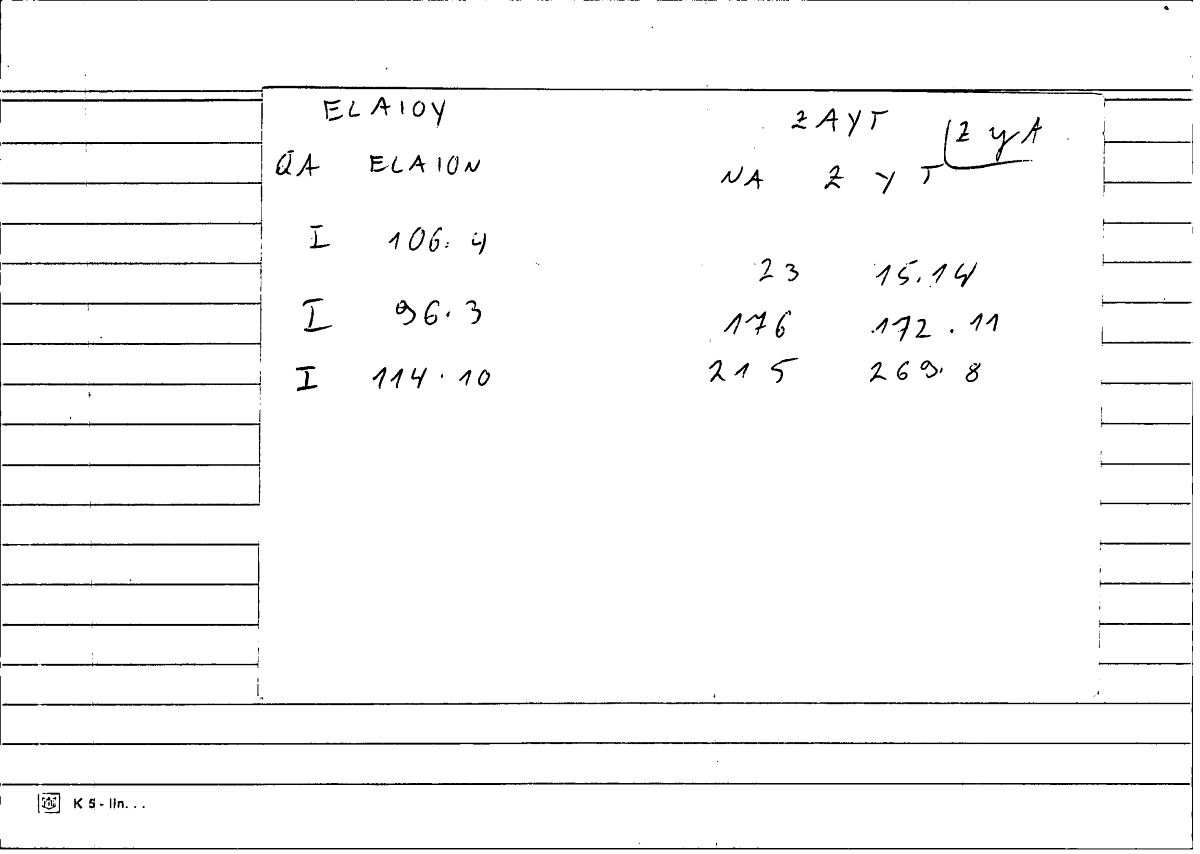 ELAIOY ZAYT ZYA
QA ELAION NA Z Y T
I 106.4
23 15.14
I 96.3 176 172.11
I 114.10 215 269.8
K 5 - lin...